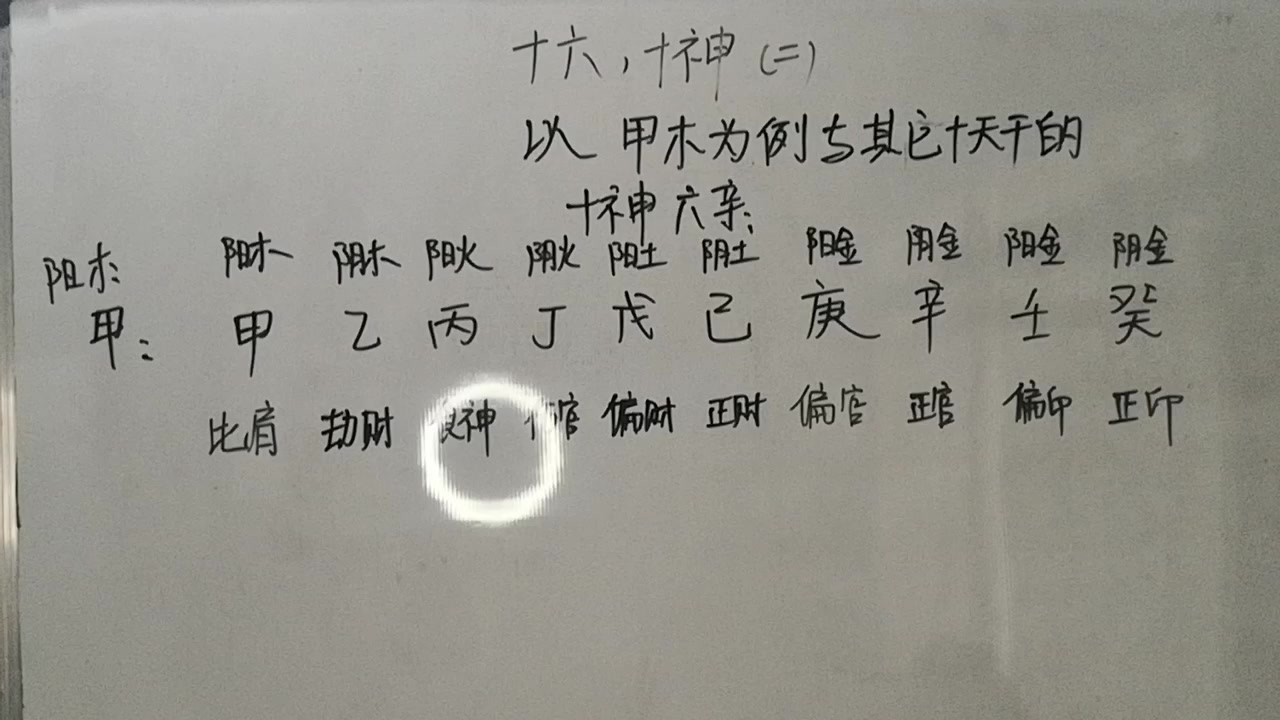 十六，十神（二）
以甲木为例与其它十天干的
十神六亲：
阳木： 阳木 阴木 阳火 阴火 阳土 阴土 阳金 阴金 阳金 阴金
甲： 甲 乙 丙 丁 戊 己 庚 辛 壬 癸
比肩 劫财 食神 官 偏财 正财 偏官 正官 偏印 正印